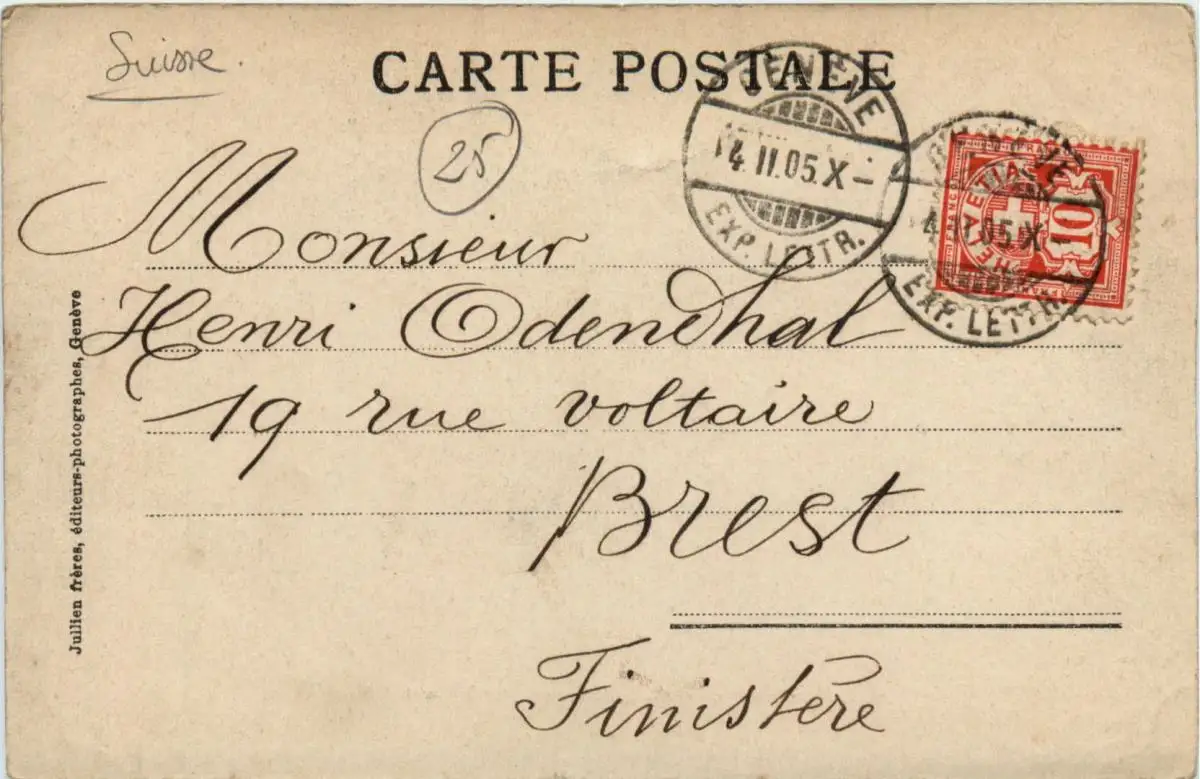 Suisse.
CARTE POSTALE
25
GENÈVE
14.II.05.X–
EXP. LETTR.
HELVETIA
10
14.II.05.X–
EXP. LETTR.
Monsieur
Henri Odendhal
19 rue voltaire
Brest
Finistère
Jullien frères, éditeurs-photographes, Genève